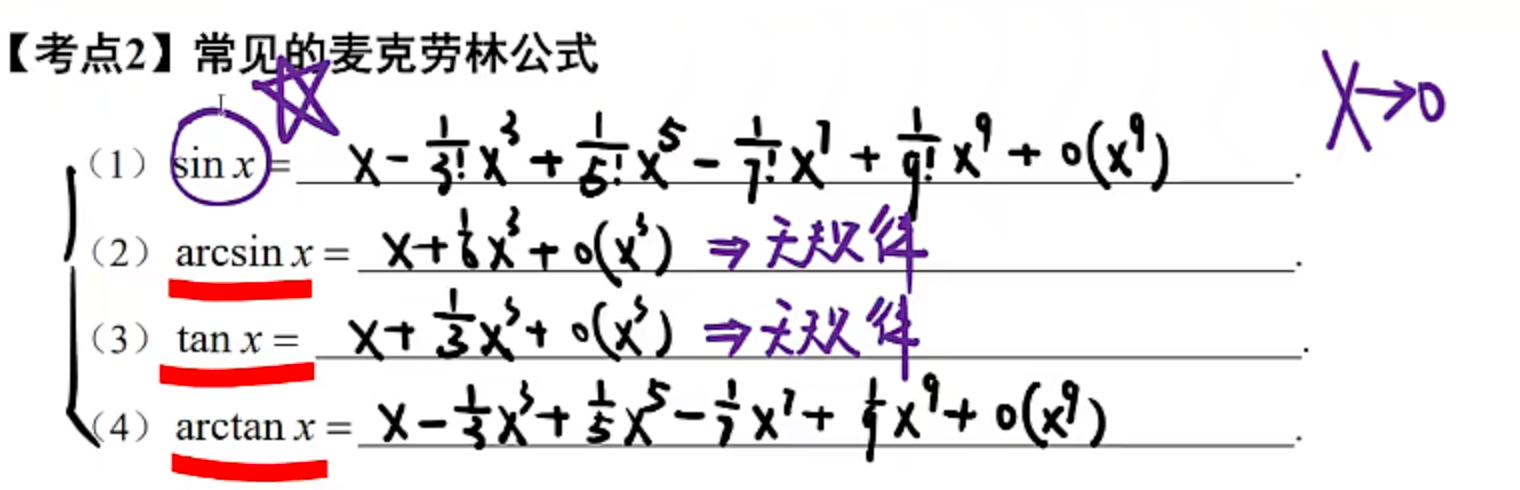 【考点2】常见的麦克劳林公式
x→0
(1) sin x = x - 1/3! x³ + 1/5! x⁵ - 1/7! x⁷ + 1/9! x⁹ + o(x⁹).
(2) arcsin x = x + 1/6 x³ + o(x³) ⇒ 无规律.
(3) tan x = x + 1/3 x³ + o(x³) ⇒ 无规律.
(4) arctan x = x - 1/3 x³ + 1/5 x⁵ - 1/7 x⁷ + 1/9 x⁹ + o(x⁹).